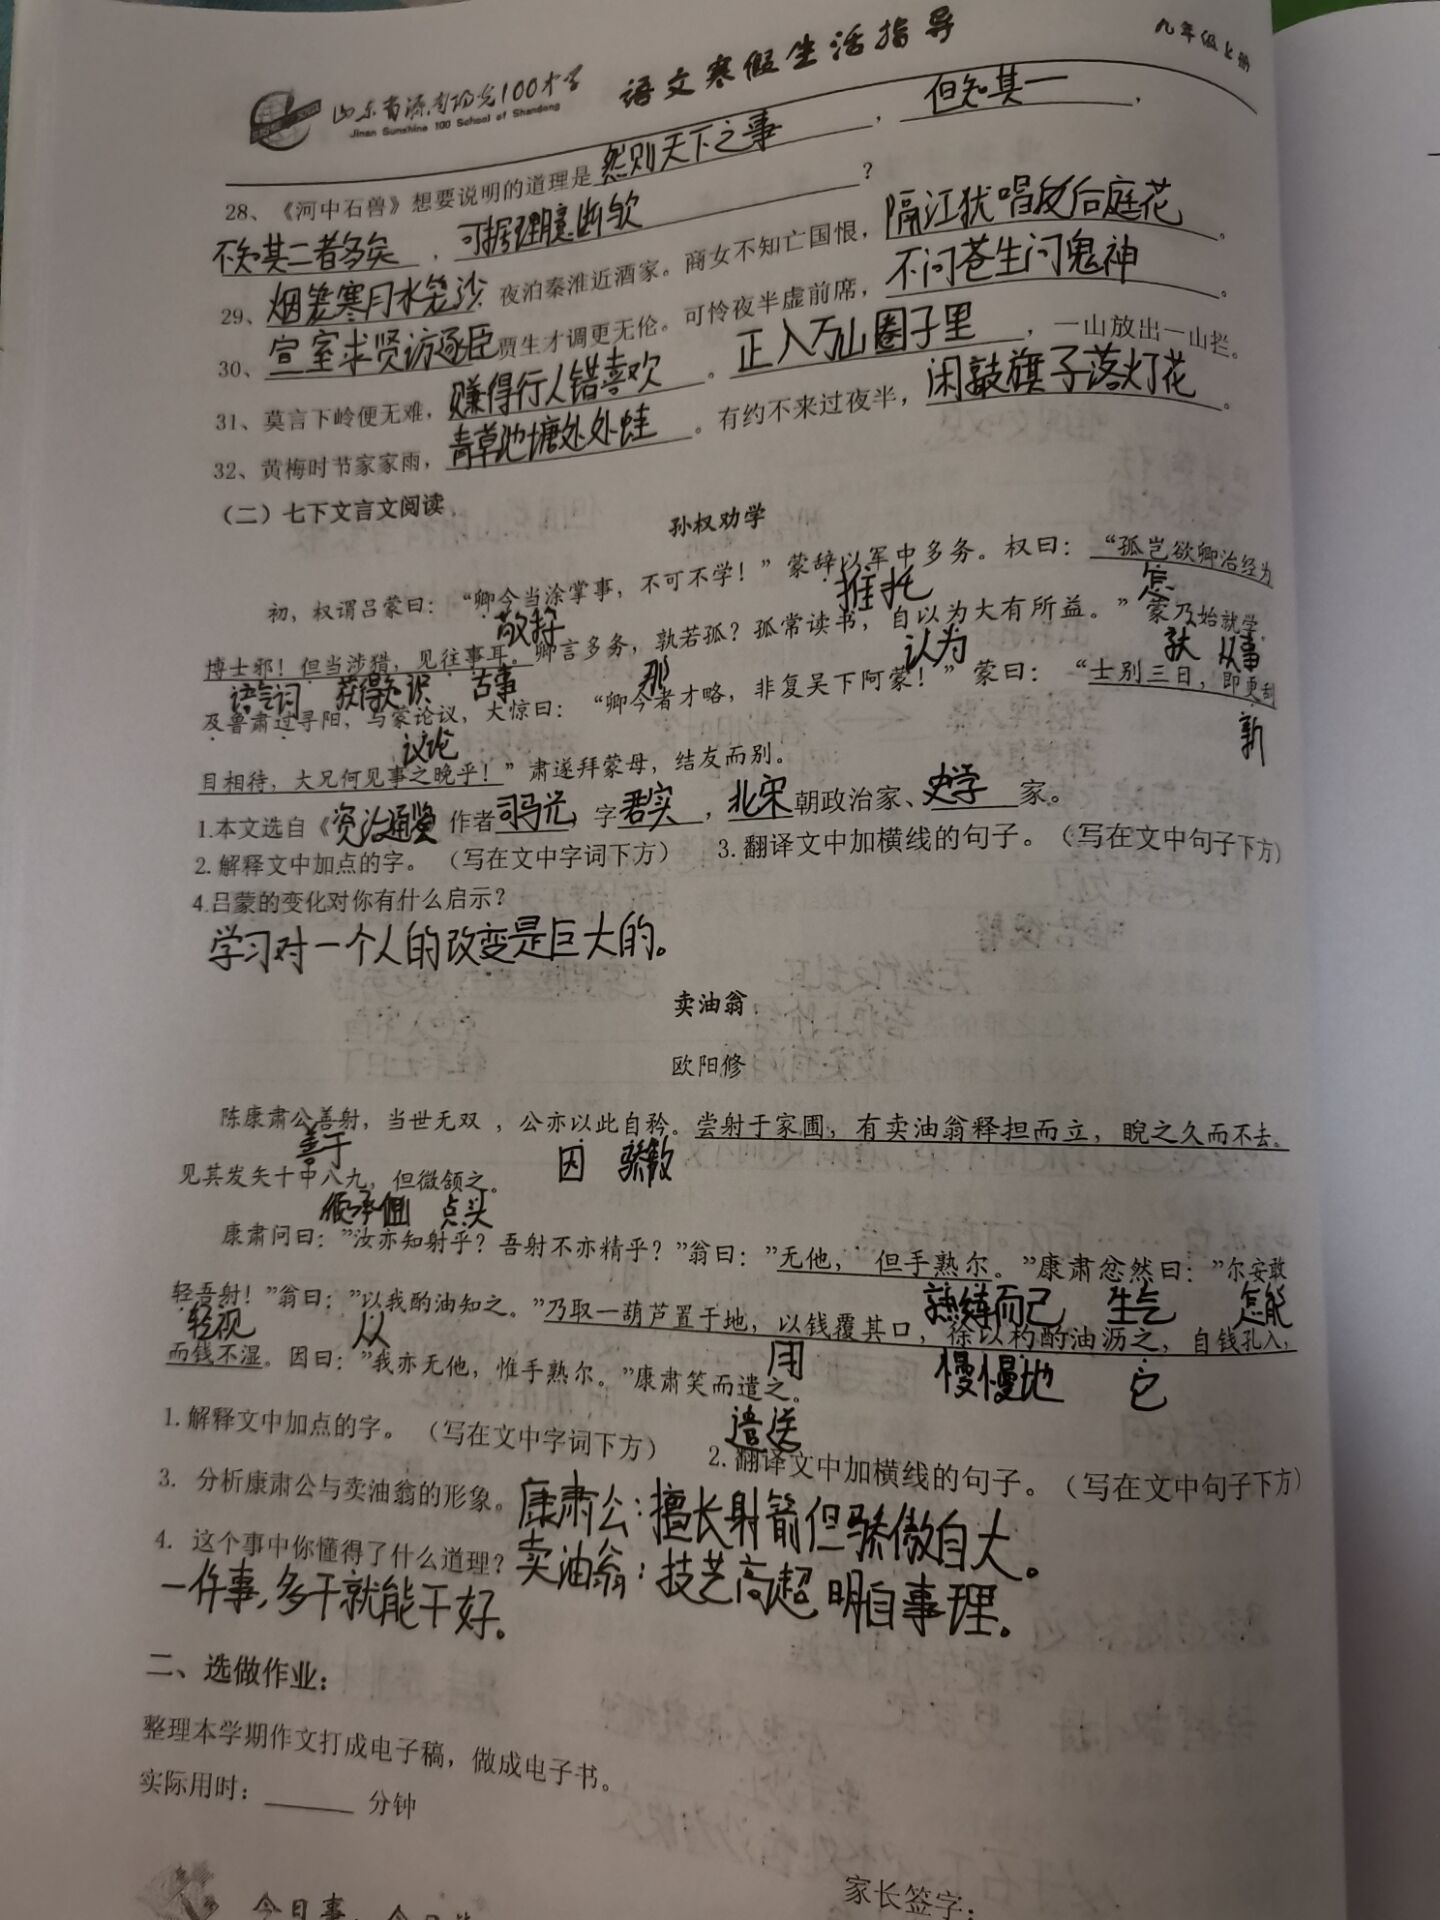 山东省济南阳光100中学 语文寒假生活指导 九年级上册
Jinan Sunshine 100 School of Shandong
28、《河中石兽》想要说明的道理是然则天下之事，但知其一，
不知其二者多矣，可据理臆断欤？
29、烟笼寒月水笼沙 夜泊秦淮近酒家。商女不知亡国恨，隔江犹唱后庭花。
30、宣室求贤访逐臣 贾生才调更无伦。可怜夜半虚前席，不问苍生问鬼神。
31、莫言下岭便无难，赚得行人错喜欢。正入万山圈子里，一山放出一山拦。
32、黄梅时节家家雨，青草池塘处处蛙。有约不来过夜半，闲敲旗子落灯花。
（二）七下文言文阅读
孙权劝学
初，权谓吕蒙曰：“卿今当涂掌事，不可不学！”蒙辞以军中多务。权曰：“孤岂欲卿治经为
推托 怎
博士邪！但当涉猎，见往事耳。卿言多务，孰若孤？孤常读书，自以为大有所益。”蒙乃始就学。
语气词 获得知识 古事 那 认为 从事
及鲁肃过寻阳，与蒙论议，大惊曰：“卿今者才略，非复吴下阿蒙！”蒙曰：“士别三日，即更刮
议论 新
目相待，大兄何见事之晚乎！”肃遂拜蒙母，结友而别。
1.本文选自《资治通鉴 作者司马光，字君实，北宋朝政治家、史学家。
2.解释文中加点的字。（写在文中字词下方） 3.翻译文中加横线的句子。（写在文中句子下方）
4.吕蒙的变化对你有什么启示？
学习对一个人的改变是巨大的。
卖油翁
欧阳修
陈康肃公善射，当世无双 ，公亦以此自矜。尝射于家圃，有卖油翁释担而立，睨之久而不去。
善于 因
见其发矢十中八九，但微颔之。
点头
康肃问曰：”汝亦知射乎？吾射不亦精乎？”翁曰：”无他， 但手熟尔。”康肃忿然曰：”尔安敢
熟练而已 生气 怎能
轻吾射！”翁曰：”以我酌油知之。”乃取一葫芦置于地，以钱覆其口，徐以杓酌油沥之，自钱孔入，
轻视 从 用 慢慢地 它
而钱不湿。因曰：”我亦无他，惟手熟尔。”康肃笑而遣之。
遣送
1.解释文中加点的字。（写在文中字词下方） 2.翻译文中加横线的句子。（写在文中句子下方）
3. 分析康肃公与卖油翁的形象。康肃公：擅长射箭但骄傲自大。
卖油翁：技艺高超，明白事理。
4. 这个事中你懂得了什么道理？
一件事，多干就能干好。
二、选做作业：
整理本学期作文打成电子稿，做成电子书。
实际用时：______ 分钟
今日事，今日
家长签字：